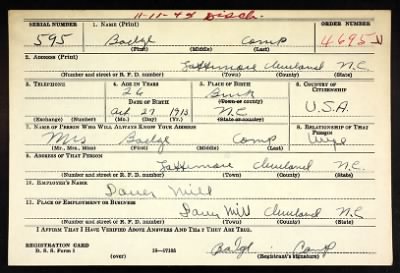 11-11-42 Disch.
SERIAL NUMBER 1. NAME (Print) ORDER NUMBER
595 Camp 4695
(First) (Middle) (Last)
2. ADDRESS (Print)
Lattimore Cleveland N.C.
(Number and street or R. F. D. number) (Town) (County) (State)
3. TELEPHONE 4. AGE IN YEARS 5. PLACE OF BIRTH 6. COUNTRY OF CITIZENSHIP
26 Burk
DATE OF BIRTH (Town or county)
Oct 27 1913 N.C. U.S.A.
(Exchange) (Number) (Mo.) (Day) (Yr.) (State or country)
7. NAME OF PERSON WHO WILL ALWAYS KNOW YOUR ADDRESS 8. RELATIONSHIP OF THAT PERSON
Mrs Camp Wife
(Mr., Mrs., Miss) (First) (Middle) (Last)
9. ADDRESS OF THAT PERSON
Lattimore Cleveland N.C.
(Number and street or R. F. D. number) (Town) (County) (State)
10. EMPLOYER'S NAME
Mill
11. PLACE OF EMPLOYMENT OR BUSINESS
Mill Cleveland N.C.
(Number and street or R. F. D. number) (Town) (County) (State)
I AFFIRM THAT I HAVE VERIFIED ABOVE ANSWERS AND THAT THEY ARE TRUE.
REGISTRATION CARD
D. S. S. Form 1 16-17105 Camp
(over) (Registrant's signature)